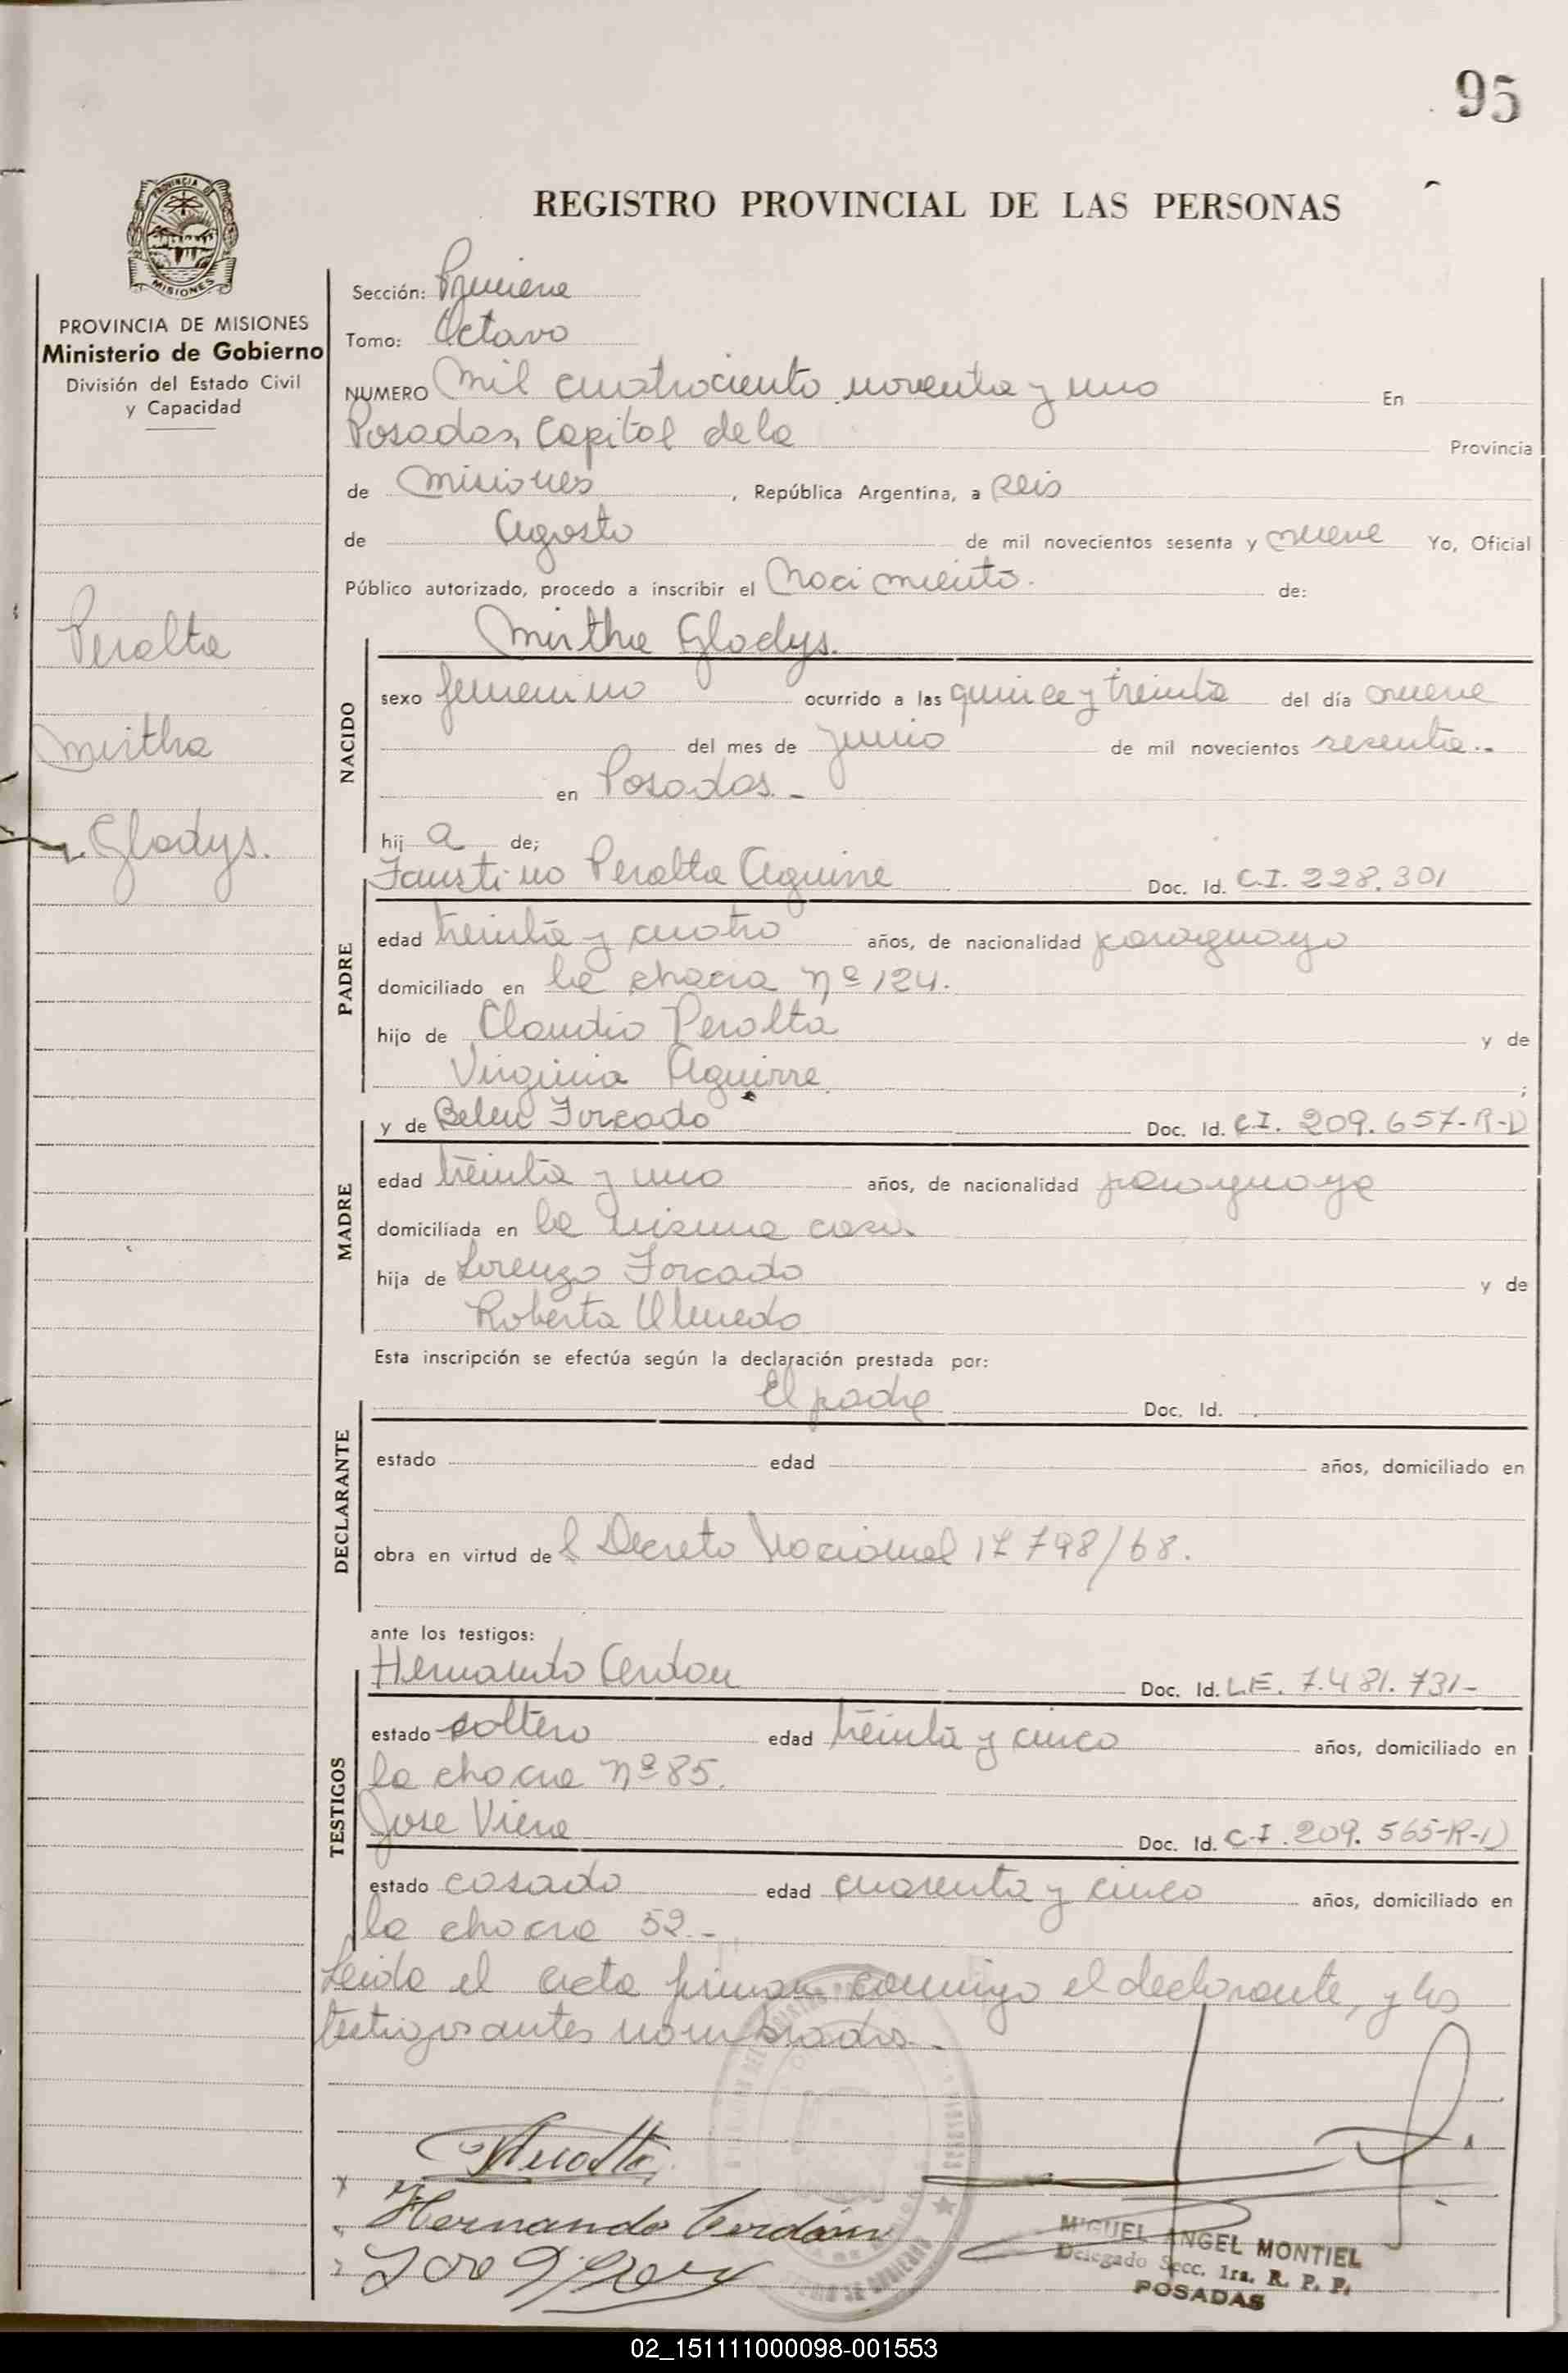 95
REGISTRO PROVINCIAL DE LAS PERSONAS
PROVINCIA DE
MISIONES
PROVINCIA DE MISIONES
Ministerio de Gobierno
División del Estado Civil
y Capacidad
Peralta
Mirtha
Gladys.
Sección: Primera
Tomo: Octavo
NUMERO Mil cuatrociento noventa y uno En
Posadas, Capital de la Provincia
de Misiones, República Argentina, a seis
de Agosto de mil novecientos sesenta y nueve Yo, Oficial
Público autorizado, procedo a inscribir el Nacimiento. de:
NACIDO
Mirtha Gladys.
sexo femenino ocurrido a las quince y treinta del día nueve
del mes de junio de mil novecientos sesenta.-
en Posadas.-
hij a de;
PADRE
Faustino Peralta Aguirre Doc. Id. C.I. 228.301
edad treinta y cuatro años, de nacionalidad paraguayo
domiciliado en la chacra Nº 124.
hijo de Claudio Peralta y de
Virginia Aguirre ;
MADRE
y de Belen Forcado Doc. Id. C.I. 209.657-R-D
edad treinta y uno años, de nacionalidad paraguaya
domiciliada en la misma casa.
hija de Lorenzo Forcado y de
Roberta Olmedo
Esta inscripción se efectúa según la declaración prestada por:
DECLARANTE
El padre Doc. Id.
estado edad años, domiciliado en
obra en virtud de l Decreto Nacional 17798/68.
ante los testigos:
TESTIGOS
Hernando Cerdan Doc. Id. L.E. 7.481.731-
estado soltero edad treinta y cinco años, domiciliado en
la chacra Nº 85.
Jose Viera Doc. Id. C.I. 209.565-R-D
estado casado edad cuarenta y cinco años, domiciliado en
la chacra 52.-
Leida el acta firman conmigo el declarante, y los
testigos antes nombrados.-
Hernando Cerdán
MIGUEL ANGEL MONTIEL
Delegado Secc. 1ra. R. P. P.
POSADAS
02_151111000098-001553